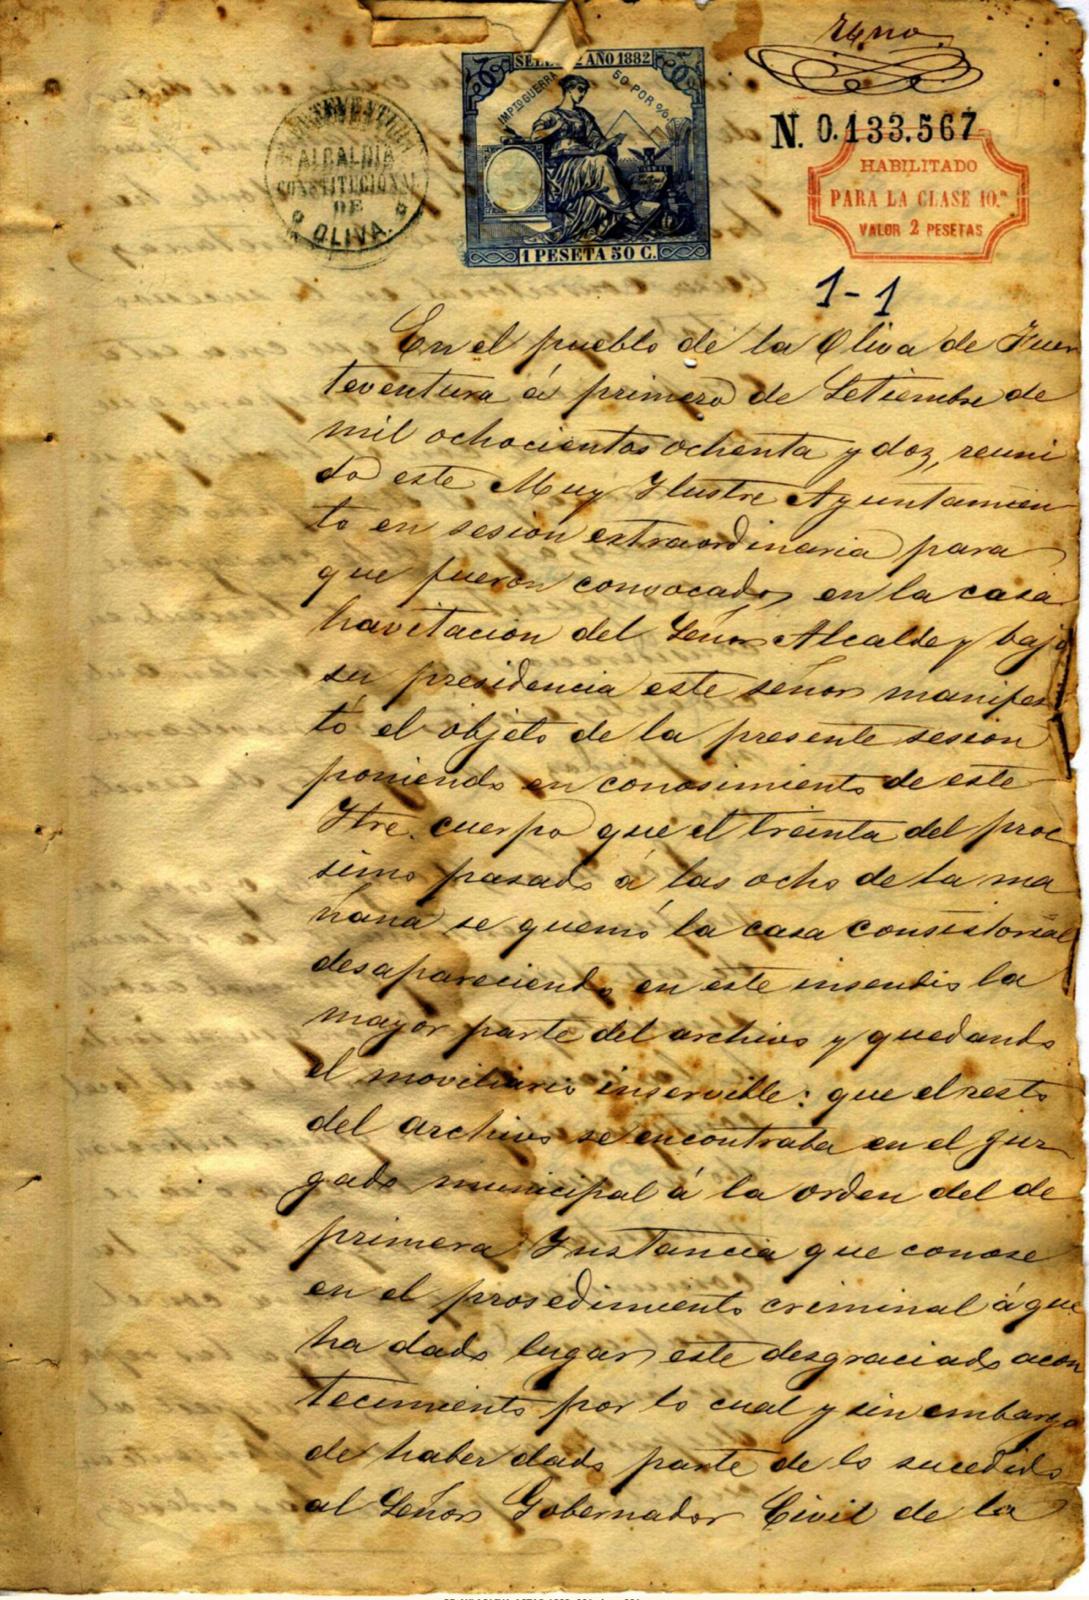 SELLO AÑO 1882
IMPTO GUERRA 50 POR %
1 PESETA 50 C.
ALCALDIA
CONSTITUCIONAL
DE
OLIVA.
N. 0.133.567
HABILITADO
PARA LA CLASE 10.ª
VALOR 2 PESETAS
1-1
En el pueblo de la Oliva de Fuer
teventura á primero de Setiembre de
mil ochocientos ochenta y doz, reuni
do este Muy Ilustre Ayuntamien
to en sesion extraordinaria para
que fueron convocados en la casa
havitacion del Señor Alcalde y bajo
su presidencia este señor manifes
tó el objeto de la presente sesion
poniendo en conosimiento de este
Iltre. cuerpo que el treinta del proc
simo pasado á las ocho de la ma
ñana se quemó la casa consistorial
desapareciendo en este insendio la
mayor parte del archivo y quedando
el moviliario inservible: que el resto
del archivo se encontraba en el Juz
gado municipal á la orden del de
primera Instancia que conose
en el prosedimiento criminal á que
ha dado lugar este desgraciado acon
tecimiento por lo cual y sin embargo
de haber dado parte de lo sucedido
al Señor Gobernador Civil de la